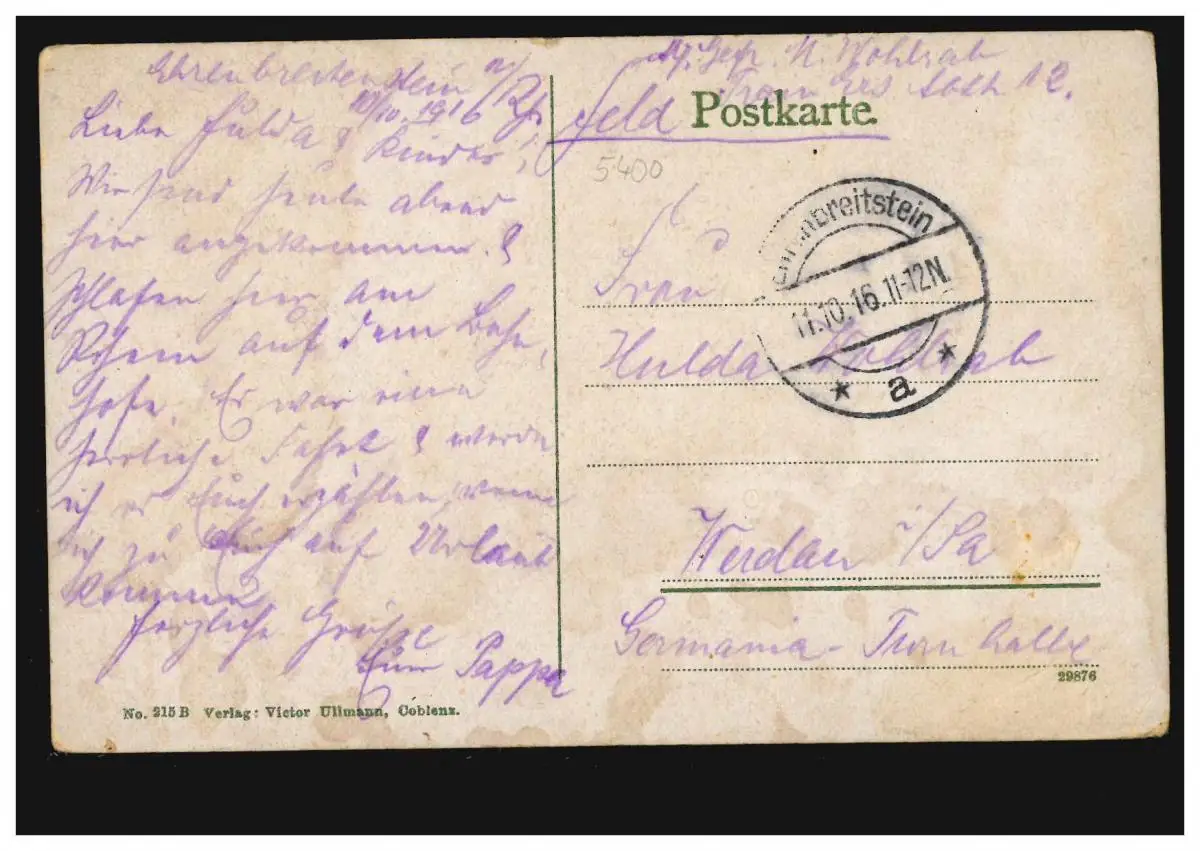 Ehrenbreitenstein a/Rh
10/10. 1916
Liebe Hulda & Kinder!
Wir sind heute abend
hier angekommen &
schlafen hier am
Rhein auf dem Bahn,
hofe. Es war eine
herrliche Fahrt & werde
ich es Euch erzählen, wenn
ich zu Euch auf Urlaub
komme
Herzliche Grüsse
Euer Pappa
No. 215 B Verlag: Victor Ullmann, Coblenz.
Gefr. M. Wohlrab
Abth 12.
Feld Postkarte
5400
Ehrenbreitstein
11.10.16.11-12N.
* a *
Frau
Hulda Wohlrab
Werdau i/Sa
Germania-Turnhalle
29876